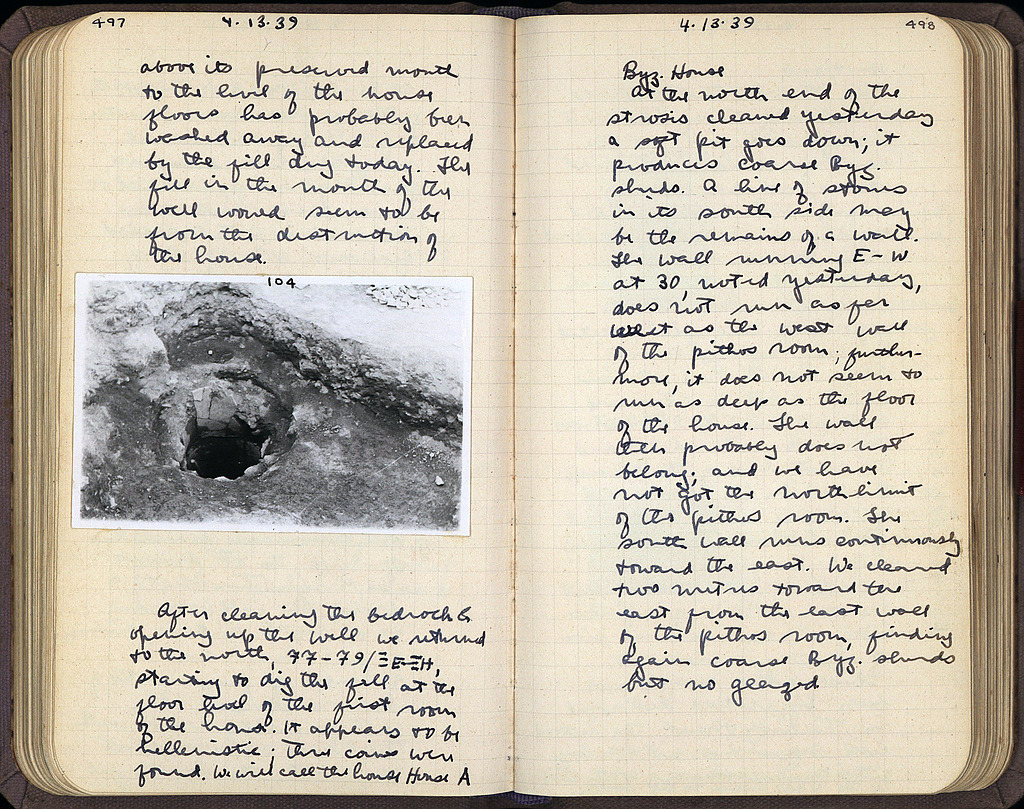 497
4.13.39
above its preserved mouth
to the level of the house
floors has probably been
washed away and replaced
by the fill dug today. The
fill in the mouth of the
well would seem to be
from the destruction of
the house.
104
After cleaning the bedrock &
opening up the well we returned
to the north, 77-79/ΞΕ-ΞΗ,
starting to dig the fill at the
floor level of the first room
of the house. It appears to be
hellenistic; three coins were
found. We will call the house House A
4.13.39
498
Byz. House
At the north end of the
strosis cleaned yesterday
a soft pit goes down; it
produces coarse Byz.
sherds. A line of stones
in its south side may
be the remains of a wall.
The wall running E-W
at 30, noted yesterday,
does not run as far
west as the west wall
of the pithos room; further-
more, it does not seem to
run as deep as the floor
of the house. The wall
then probably does not
belong; and we have
not got the north limit
of the pithos room. The
south wall runs continuously
toward the east. We cleared
two metres toward the
east from the east wall
of the pithos room, finding
again coarse Byz. sherds
but no glazed